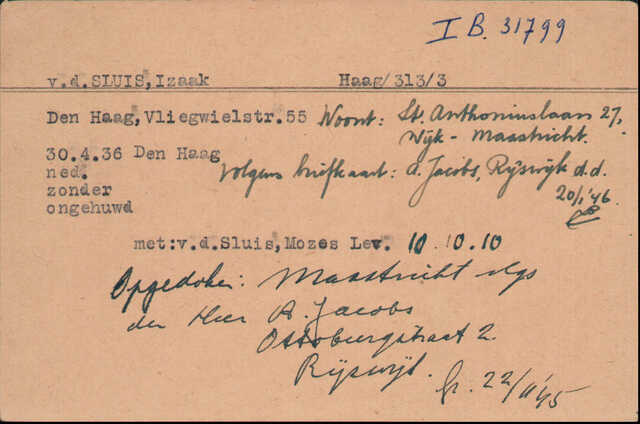 I B. 31799
v.d.SLUIS,Izaak Haag/313/3
Den Haag,Vliegwielstr.55 Woont: St. Anthoniuslaan 27,
Wijk - Maastricht.
30.4.36 Den Haag
ned. Volgens briefkaart: A. Jacobs, Rijswijk d.d.
zonder 20/1 '46
ongehuwd
met:v.d.Sluis,Mozes Lev. 10.10.10
Opgedoken: Maastricht vlgs
den Heer A. Jacobs
Ottoburgstraat 2.
Rijswijk.
22/11 '45